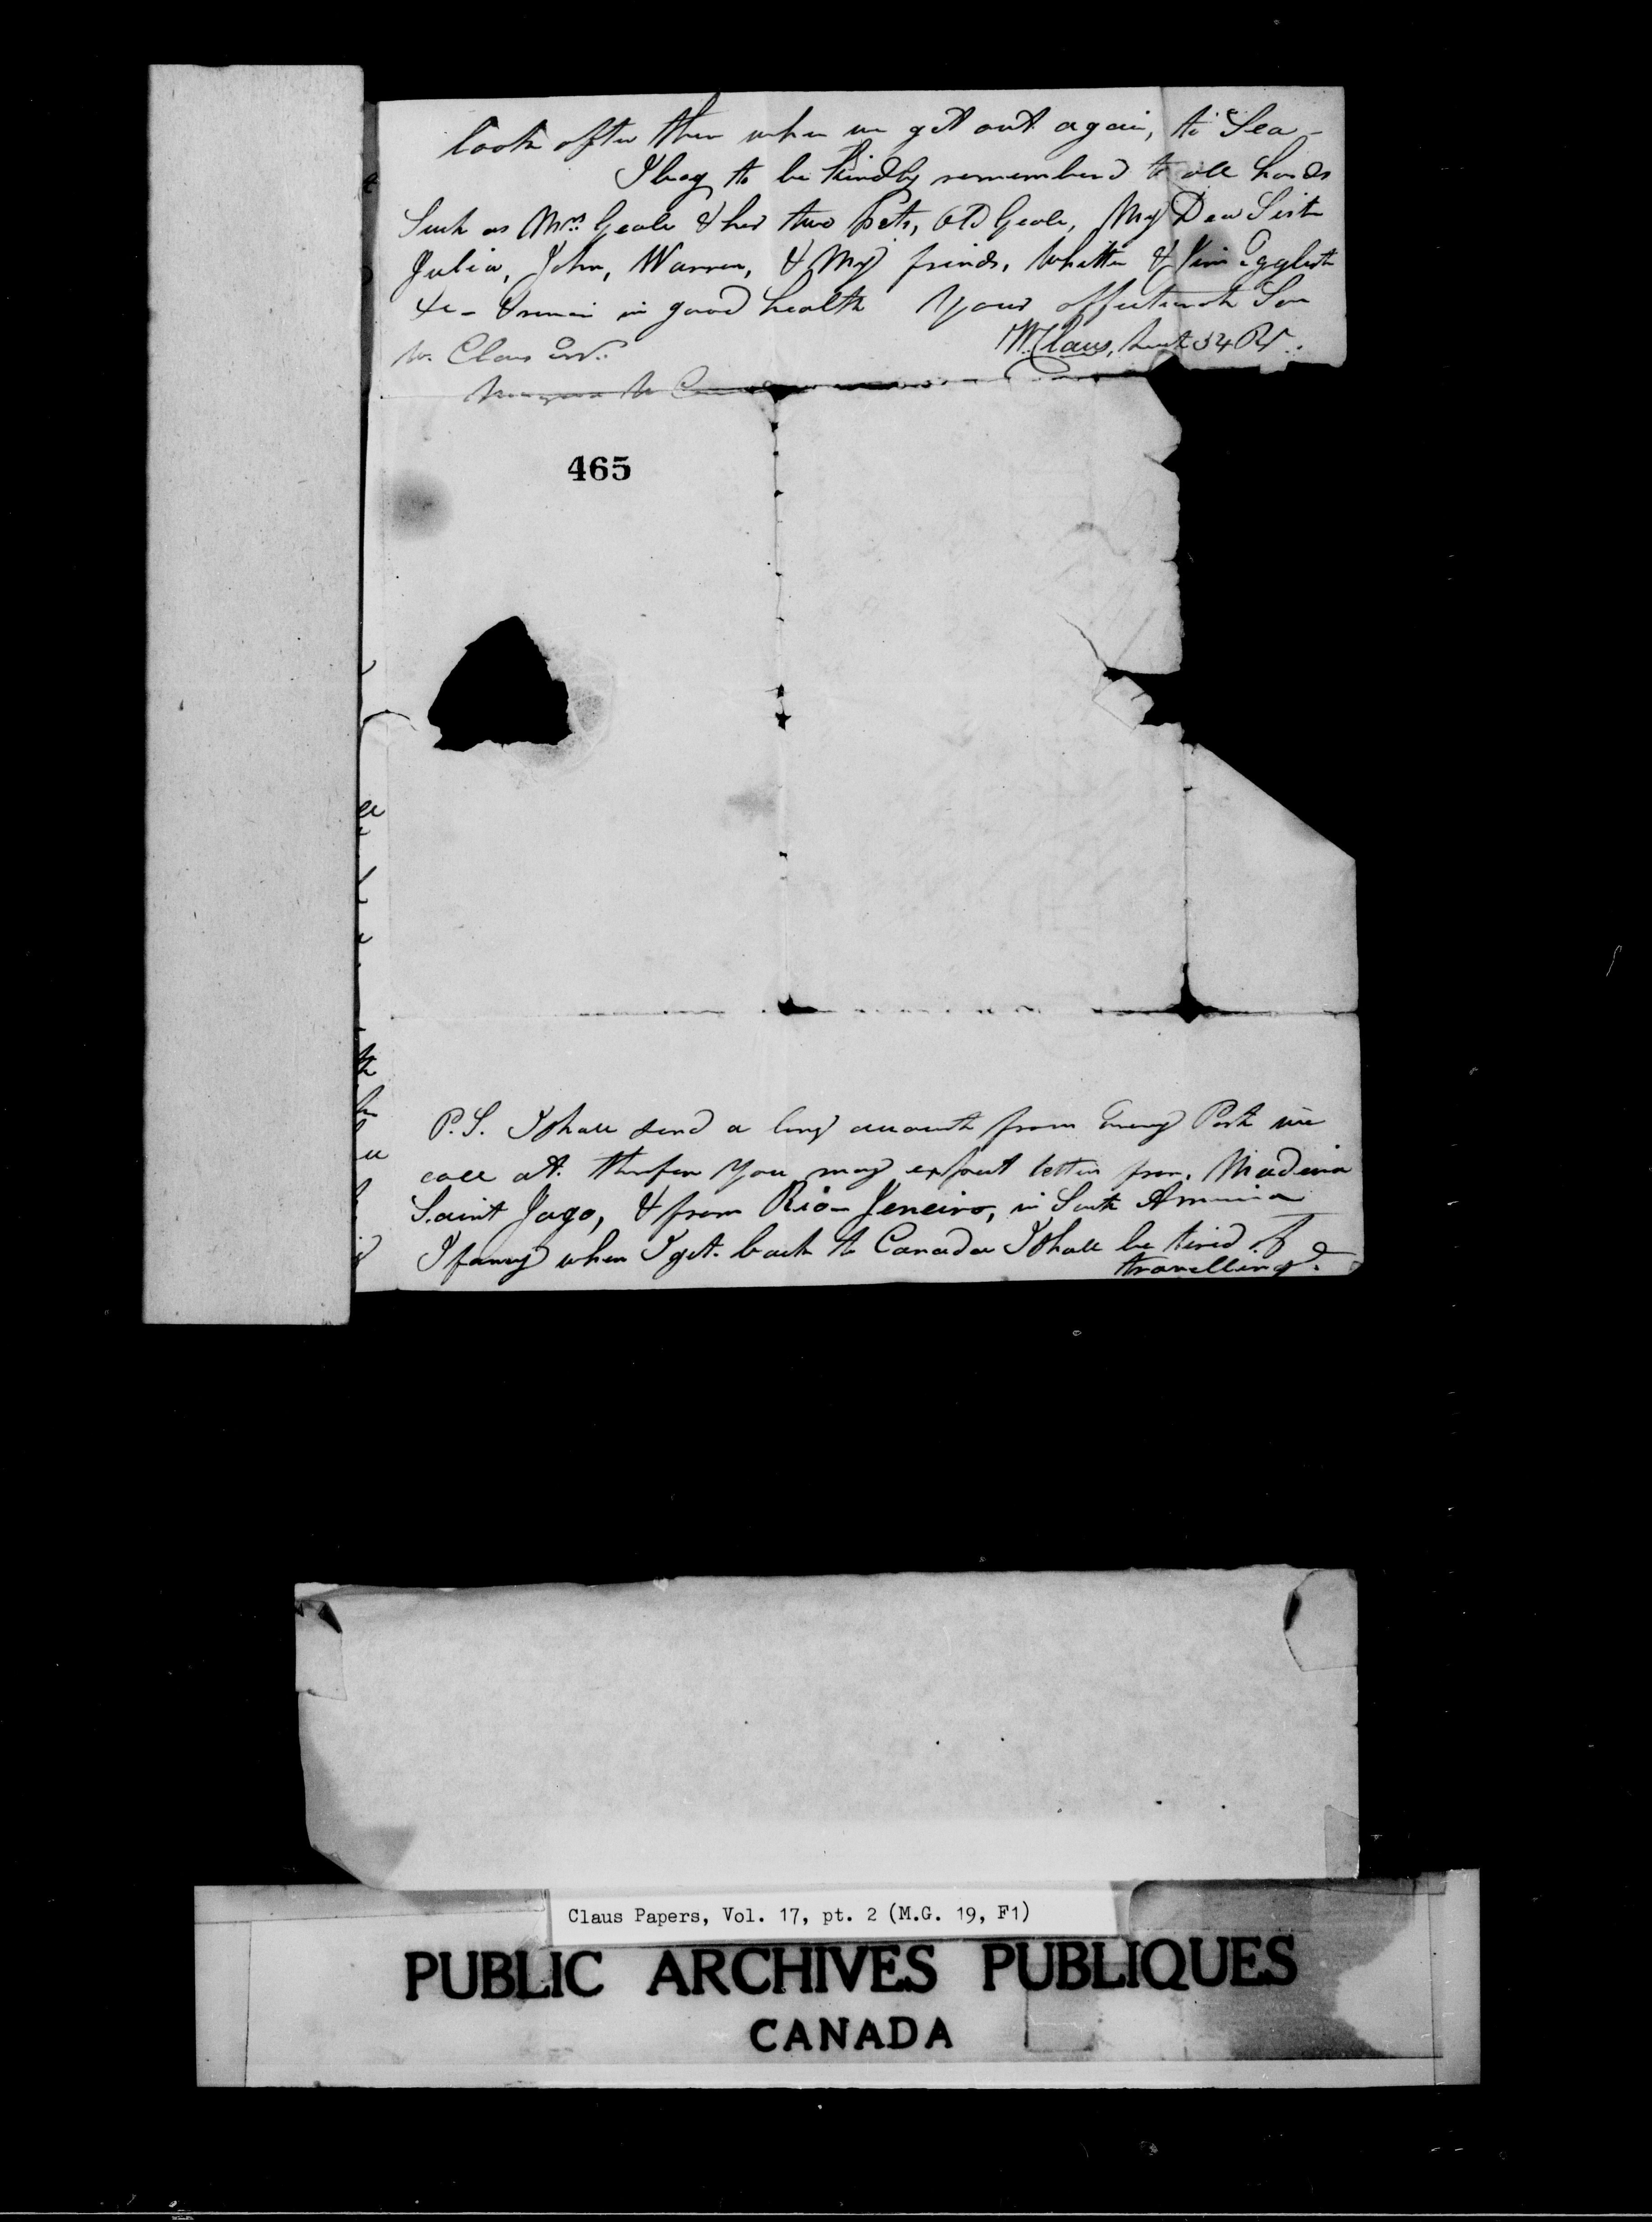 look after them when we get out again, to Sea –
I beg to be kindly rememberd to all hands
Such as Mrs. Geale & her two pets, Old Geale, My Dear Sister
Julia, John, Warren, & My frinds, Whitten & Jim Egglest
&c – & remain in good health Your affectionate Son
W. Claus, Lieut 54 Rt.
W. Claus Esqr.
Niagara U C
465
P.S. I shall send a long account from Every Port we
call at. therefore You may expect letters from, Madeira
Saint Jago, & from Rio Jeneiro, in South America
I fancy when I get back to Canada I shall be tired of
travelling.
Claus Papers, Vol. 17, pt. 2 (M.G. 19, F1)
PUBLIC ARCHIVES PUBLIQUES
CANADA